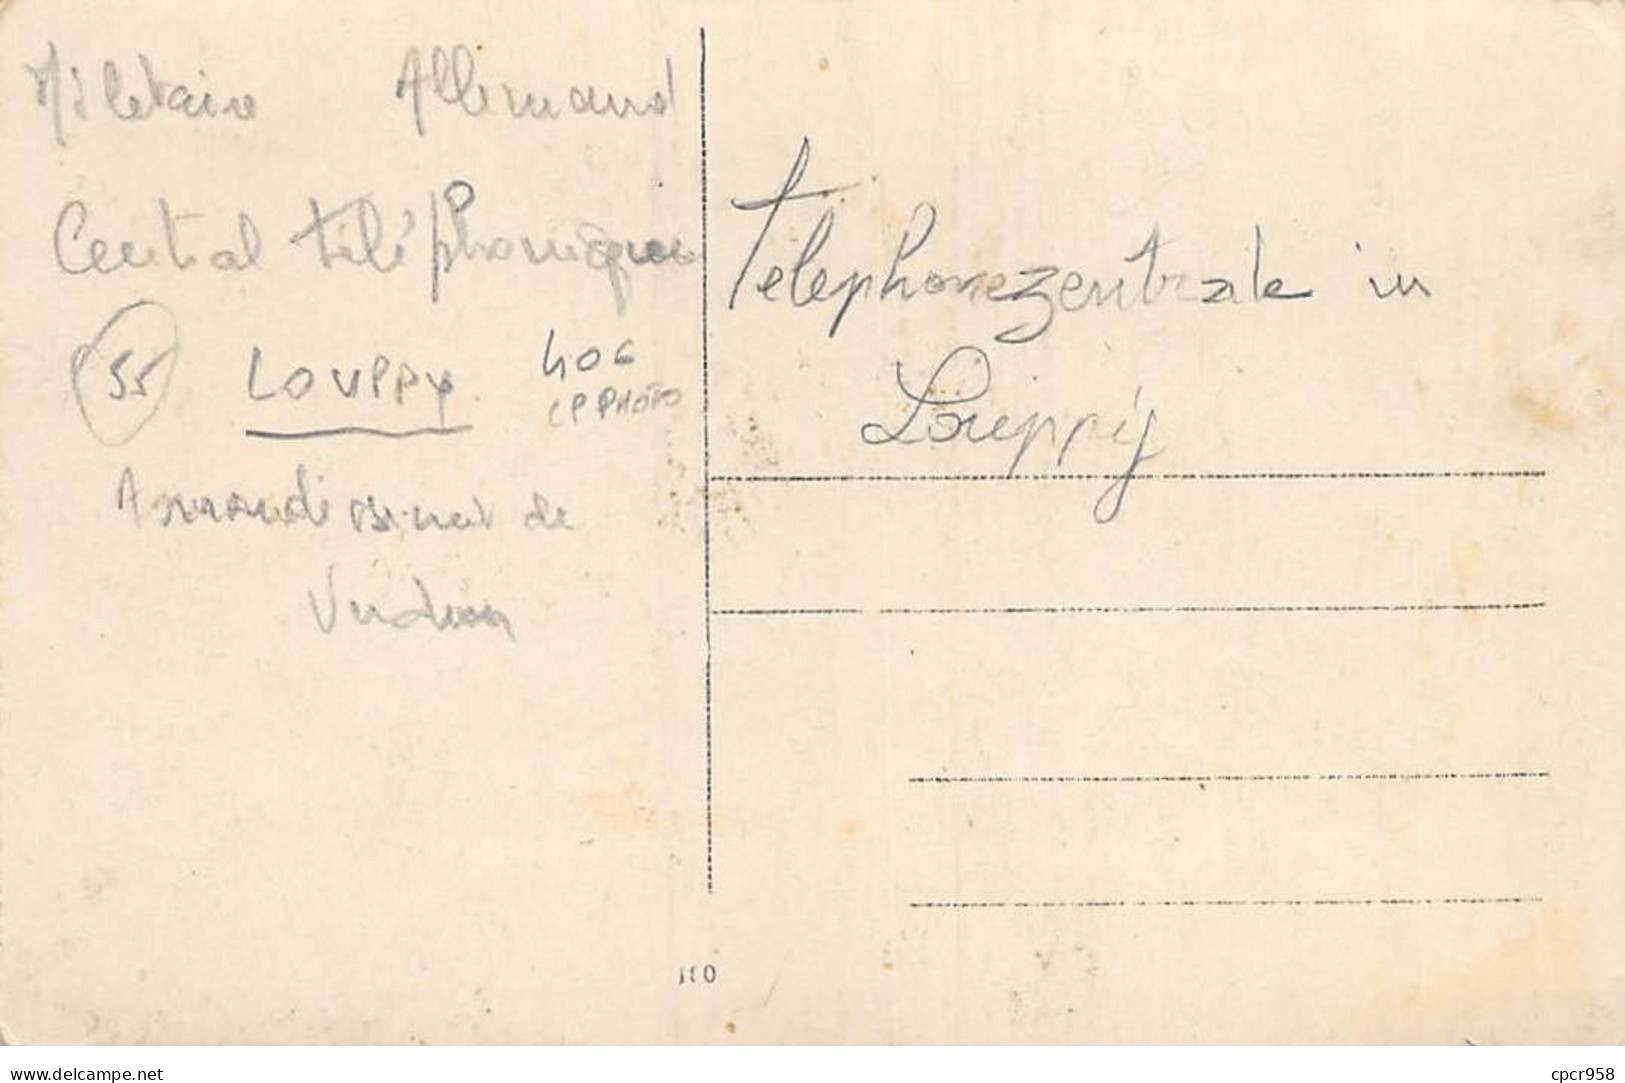 Militaire Allemand
Central téléphonique
55 LOUPPY 40€
CP PHOTO
Arrondissement de
Verdun
Telephonezentrale in
Louppy
delcampe.net
cpcr958